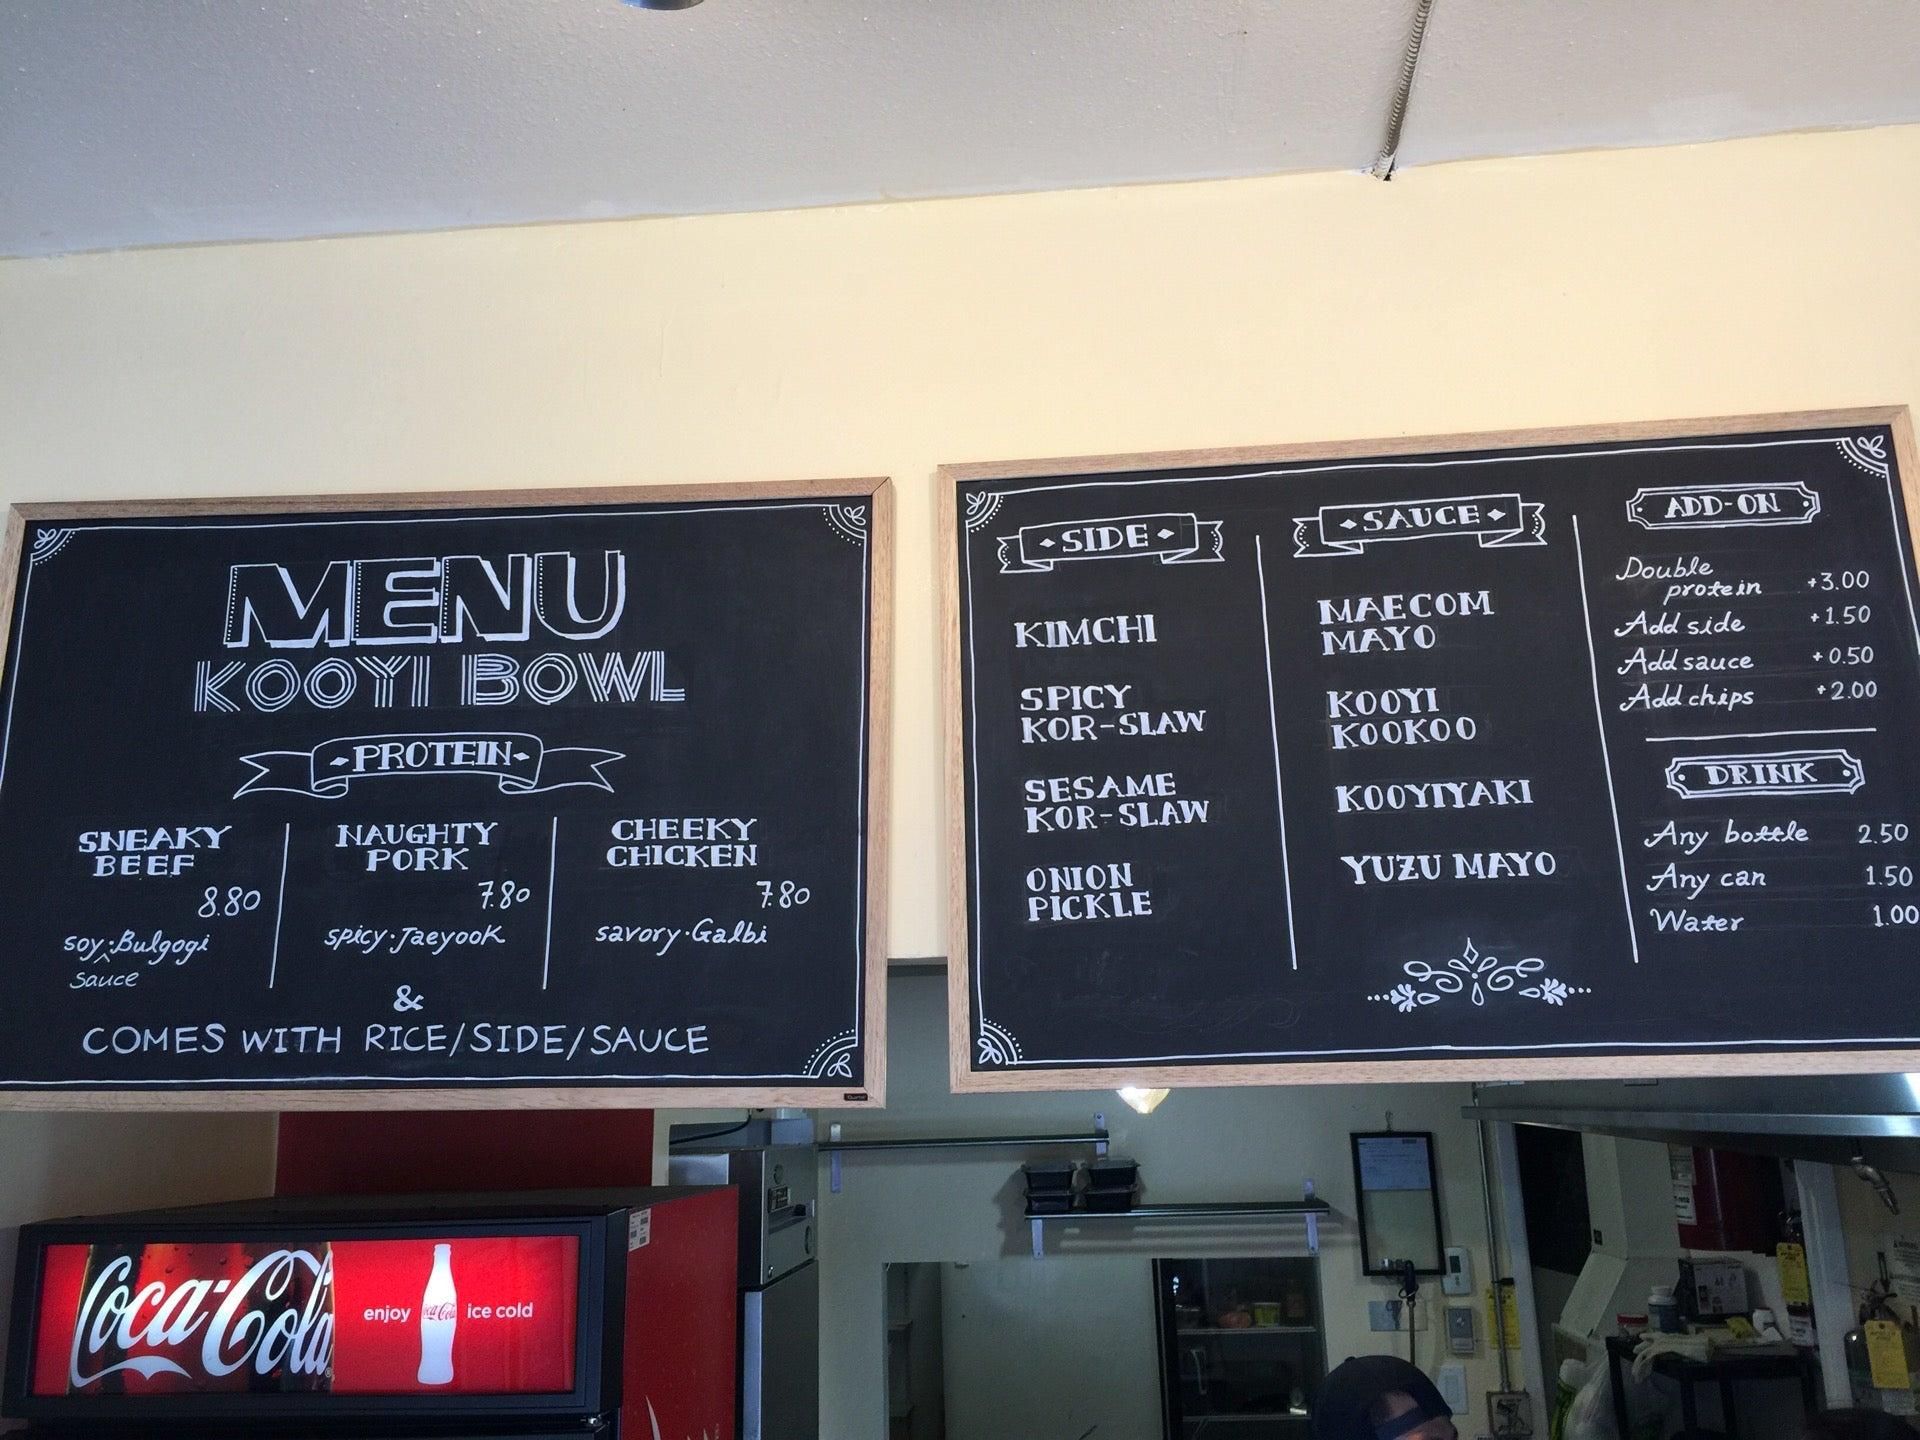 MENU
KOOYI BOWL
PROTEIN
SNEAKY
BEEF
8.80
soy Bulgogi
sauce
NAUGHTY
PORK
7.80
spicy Jaeyook
CHEEKY
CHICKEN
7.80
savory Galbi
&
COMES WITH RICE/SIDE/SAUCE
SIDE
KIMCHI
SPICY
KOR-SLAW
SESAME
KOR-SLAW
ONION
PICKLE
SAUCE
MAECOM
MAYO
KOOYI
KOOKOO
KOOYIYAKI
YUZU MAYO
ADD-ON
Double
protein +3.00
Add side +1.50
Add sauce +0.50
Add chips +2.00
DRINK
Any bottle 2.50
Any can 1.50
Water 1.00
Coca-Cola
enjoy Coca-Cola ice cold